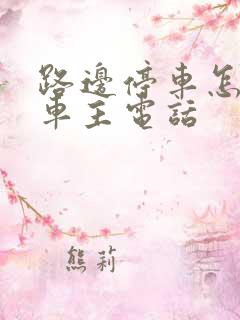 路邊停車怎
車主電話
熊莉